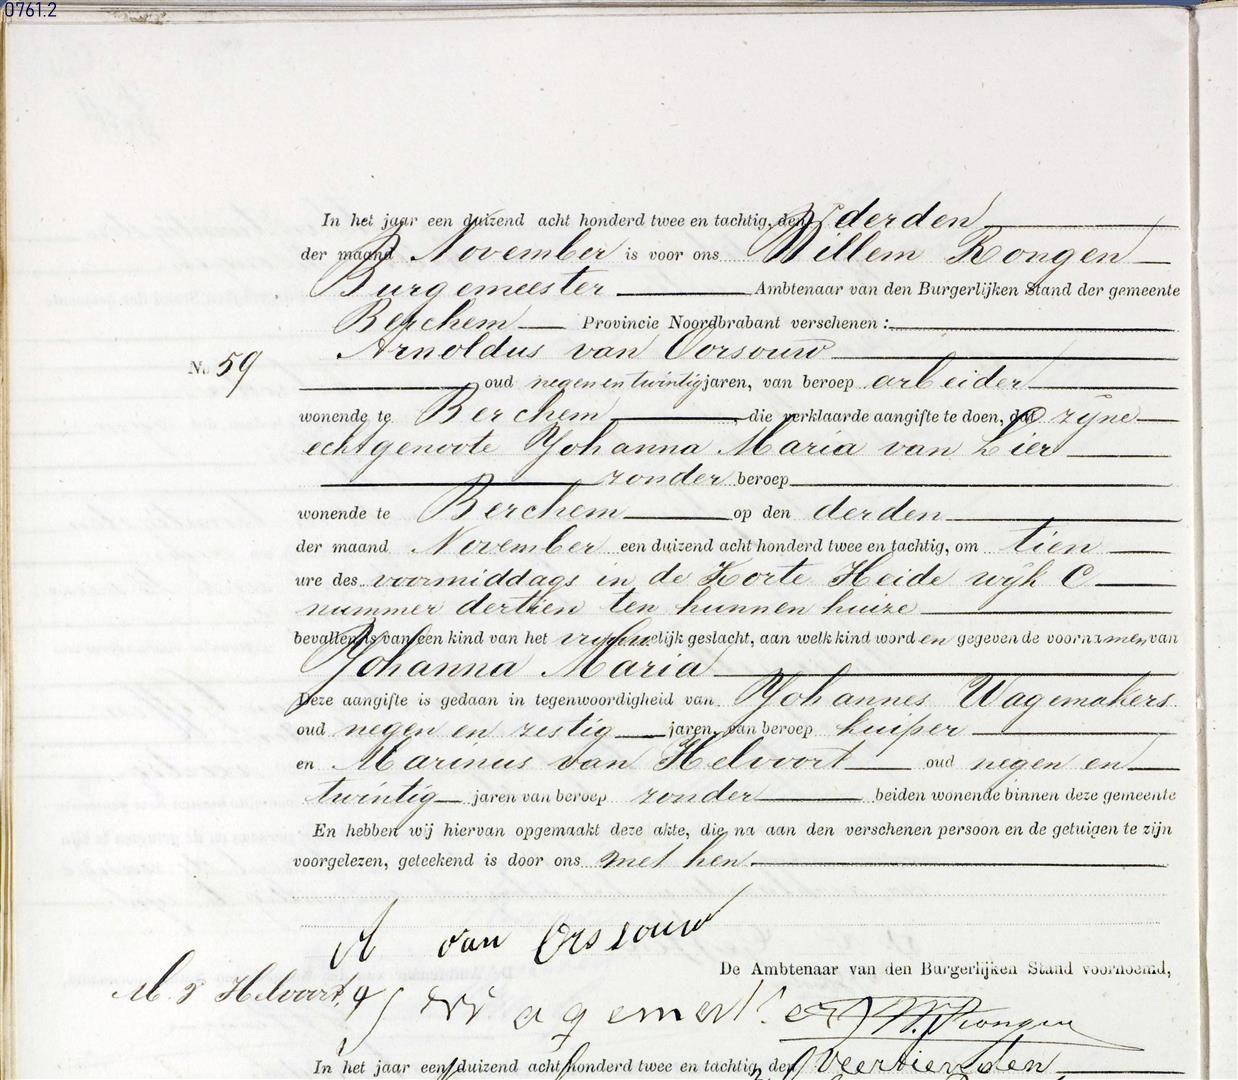 0761.2
In het jaar een duizend acht honderd twee en tachtig, den derden
der maand November is voor ons Willem Rongen
Burgemeester Ambtenaar van den Burgerlijken Stand der gemeente
Berchem Provincie Noordbrabant verschenen :
Arnoldus van Oorsouw
No. 59
oud negen en twintig jaren, van beroep arbeider
wonende te Berchem, die verklaarde aangifte te doen, dat zijne
echtgenoote Johanna Maria van Lier
zonder beroep
wonende te Berchem op den derden
der maand November een duizend acht honderd twee en tachtig, om tien
ure des voormiddags in de Korte Heide wijk C
nummer dertien ten hunnen huize
bevallen is van een kind van het vrouwelijk geslacht, aan welk kind worden gegeven de voornamen van
Johanna Maria
Deze aangifte is gedaan in tegenwoordigheid van Johannes Wagemakers
oud negen en zestig jaren, van beroep kuiper
en Marinus van Helvoort oud negen en
twintig jaren van beroep zonder beiden wonende binnen deze gemeente
En hebben wij hiervan opgemaakt deze akte, die na aan den verschenen persoon en de getuigen te zijn
voorgelezen, geteekend is door ons met hen
A van Orsouw
De Ambtenaar van den Burgerlijken Stand voornoemd,
M. v Helvoort
W. Rongen
In het jaar een duizend acht honderd twee en tachtig, den veertienden